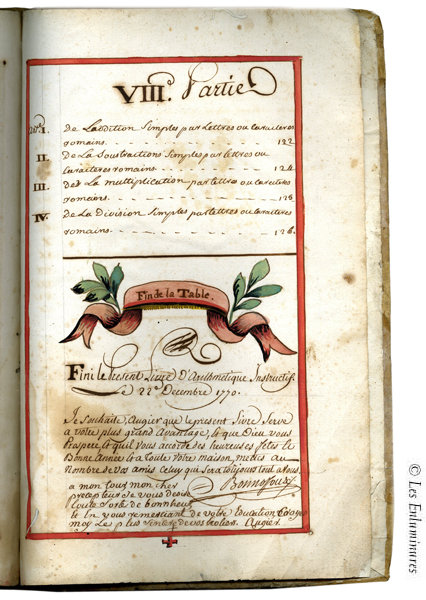 VIII.e Partie
I. De Laddition Simples par Lettres ou caracteres
romains. 122
II. De La Soustractions Simples par lettres ou
caracteres romains. 124
III. La multiplication par lettres ou caracteres
romains. 125
IV. De La Division Simples par lettres ou caracteres
romains. 126.
Fin de la Table.
Fini le Present Livre D'Arithmetique Instructif
22e Decembre 1770.
Je Souhaite, Augier que le present Livre Serve
a votre plus grand Avantage, et que Dieu vous
Prospere, et quil vous accorde des heureuses fetes et
Bonne Année et a toute Votre maison, metes au
Nombre de vos amis celuy qui Sera toujours tout a vous.
Bonnefoux
a mon tour mon cher
precepteur je vous desire
toute Sorte de bonheur
et en vous remerciant de votre
moy Le plus Augier
© Les Enluminures